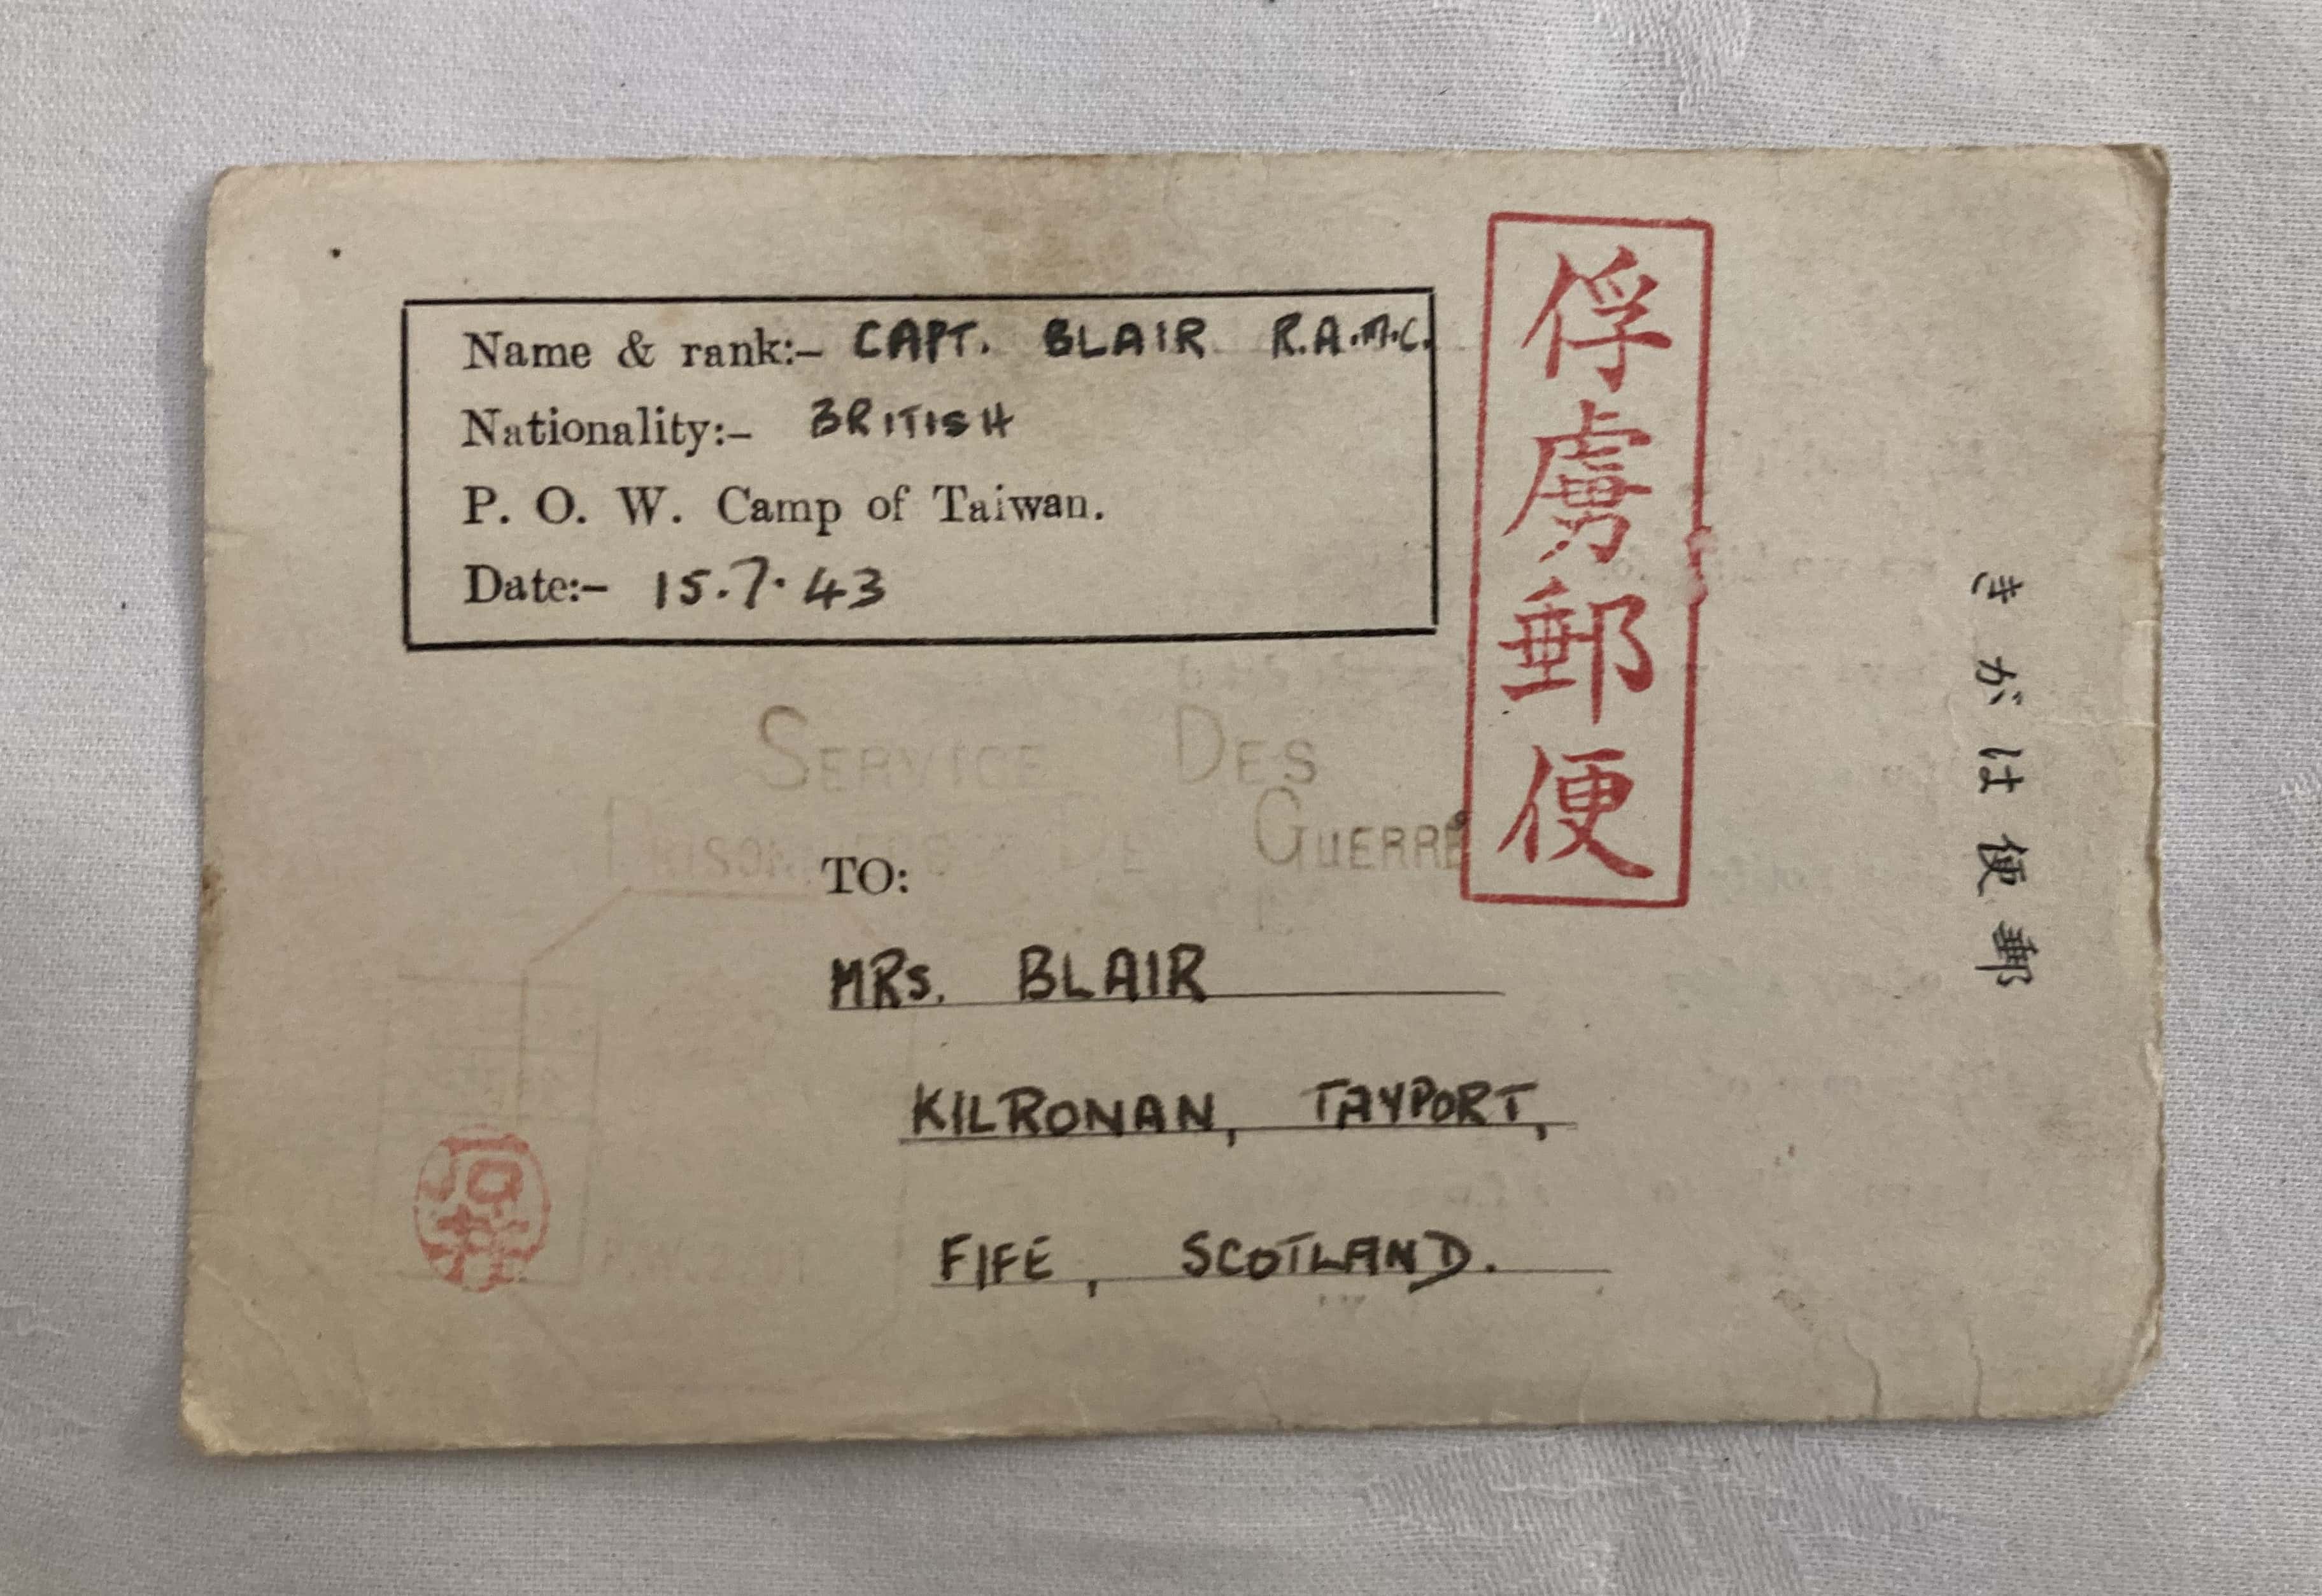 Name & rank:- CAPT. BLAIR R.A.M.C.
Nationality:- BRITISH
P. O. W. Camp of Taiwan.
Date:- 15.7.43
俘虜郵便
郵便はがき
SERVICE DES
PRISONNIERS DE GUERRE
TO:
MRS. BLAIR
KILRONAN, TAYPORT,
FIFE, SCOTLAND.